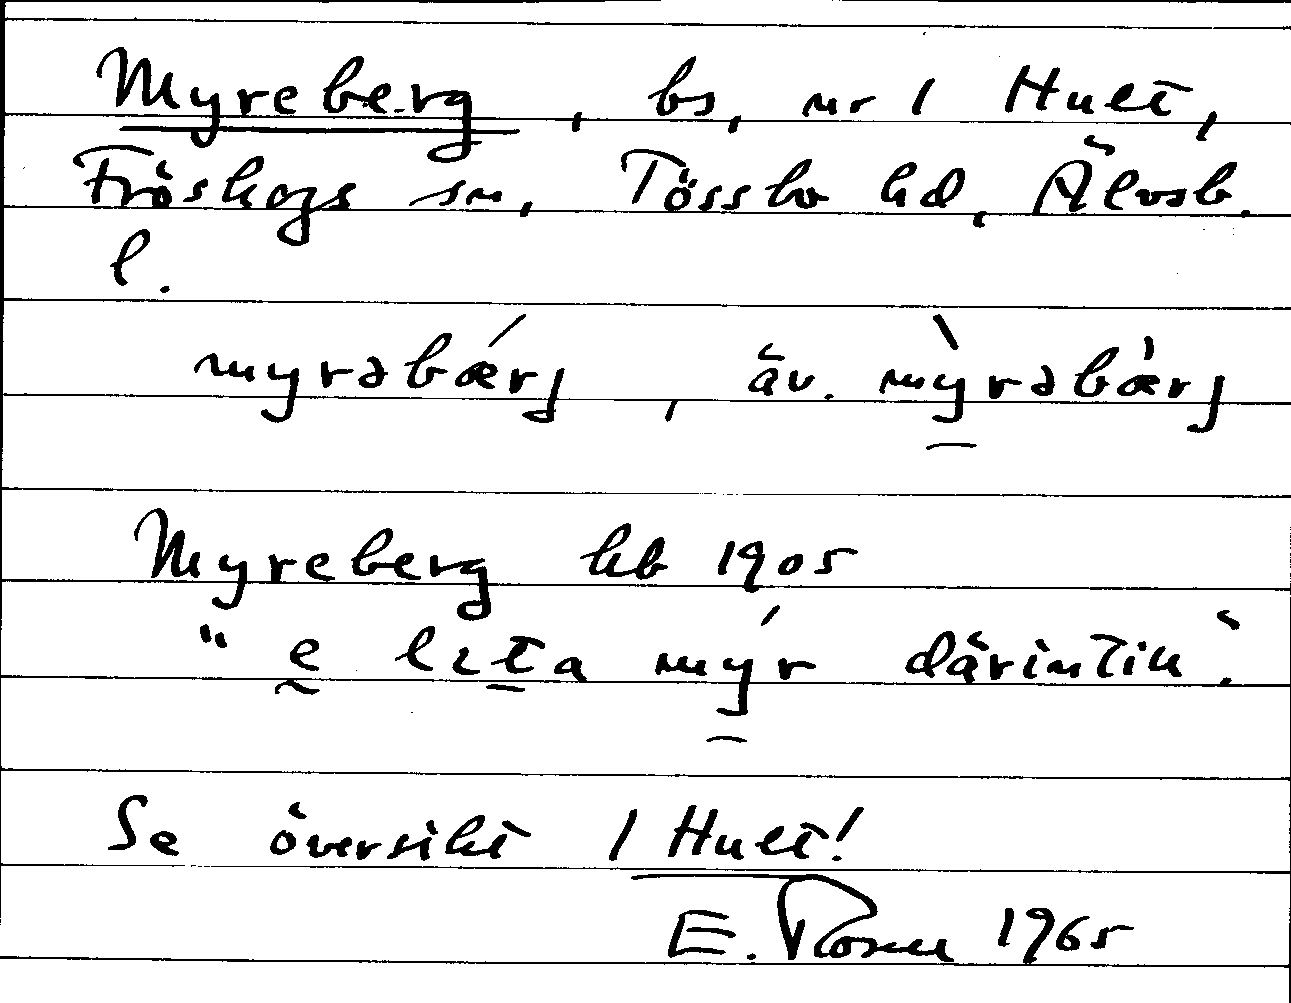 Myreberg, bs, nr 1 Hult,
Fröskogs sn, Tössbo hd, Älvsb.
l.
myrəbǽrj, äv. mỳrəbæ̀rj
Myreberg hb 1905
"e lita mýr därintill".
Se översikt 1 Hult!
E. Rosén 1965